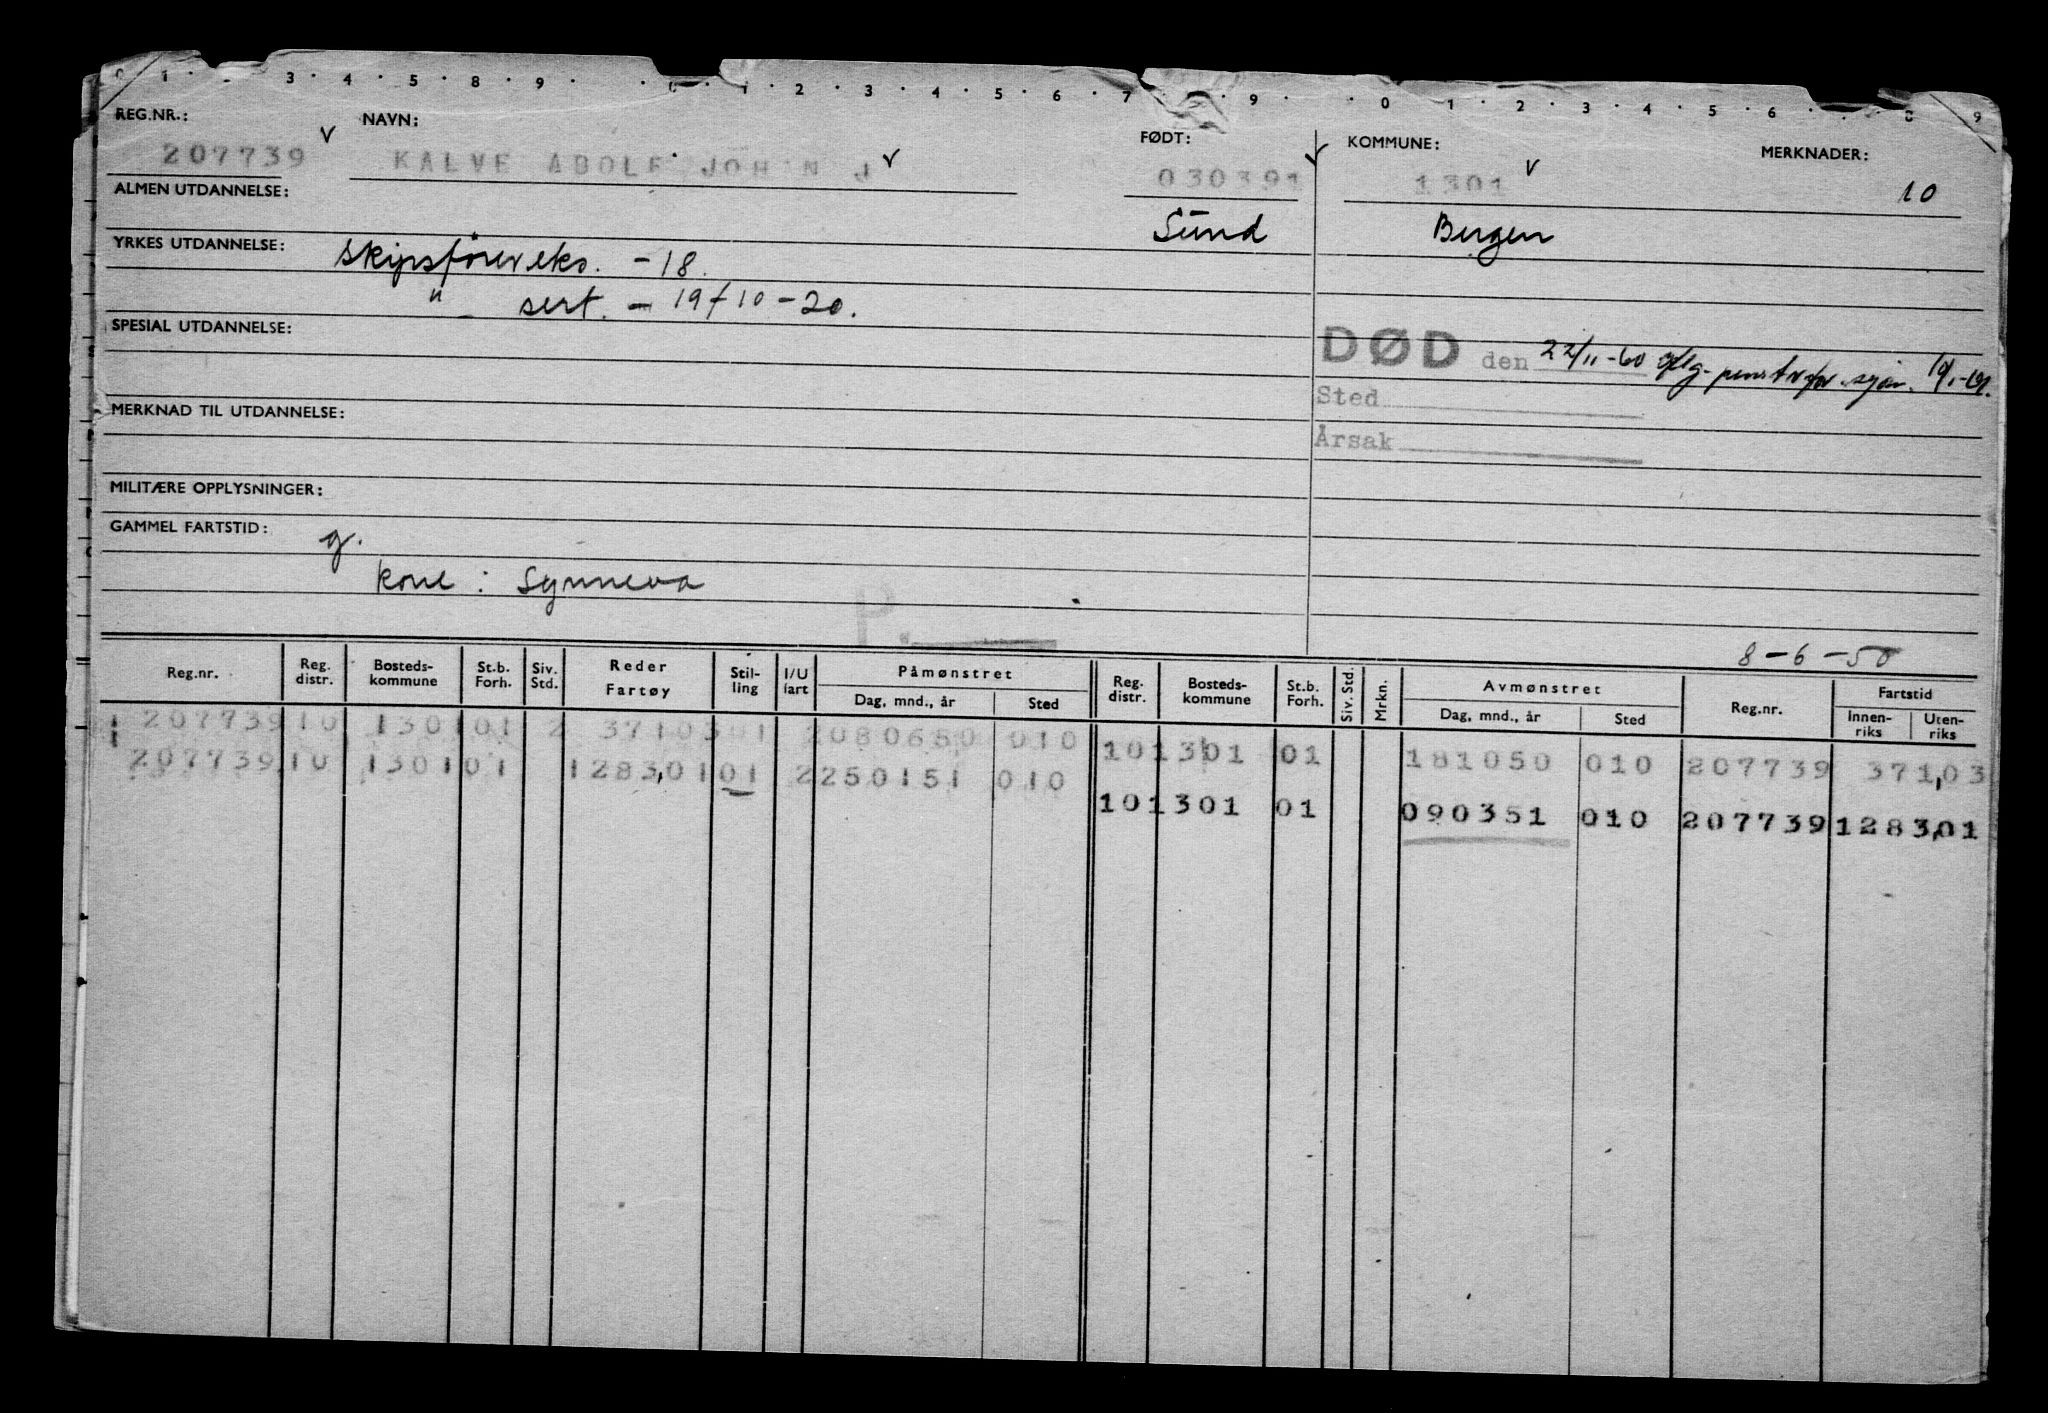 REG.NR.: NAVN: FØDT: KOMMUNE: MERKNADER:
207739 v KALVE ADOLF JOHAN J v 030391 v 1301 v 10
ALMEN UTDANNELSE: Sund Bergen
YRKES UTDANNELSE: Skipsförereks. -18.
" sert. - 19/10-20.
SPESIAL UTDANNELSE:
DØD den 22/11-60
Sted
MERKNAD TIL UTDANNELSE:
Årsak
MILITÆRE OPPLYSNINGER:
GAMMEL FARTSTID: g.
kone: Synneva
P.
8-6-50
Reg.nr. Reg. distr. Bosteds-kommune St.b. Forh. Siv. Std. Reder Fartøy Stil-ling I/U fart Påmønstret Dag, mnd., år Sted Reg. distr. Bosteds-kommune St.b. Forh. Siv. Std. Mrkn. Avmønstret Dag, mnd., år Sted Reg.nr. Fartstid Innen-riks Uten-riks
207739 10 1301 01 2 3710301 2080650 010
101301 01 181050 010 207739 371,03
207739 10 1301 01 1283,01 01 2250151 010
101301 01 090351 010 207739 1283,01